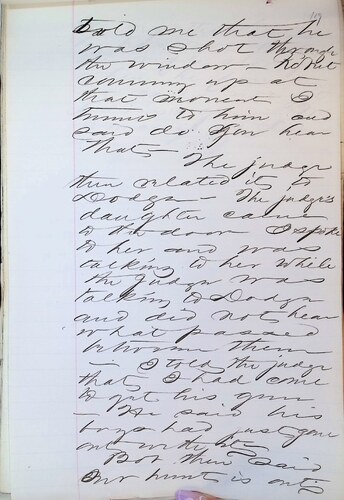 told me that he
was shot through
the window –
coming up at
that moment I
turned to him and
said do you hear
that – The judge
then related it to
Dodge – The judge's
daughter came
to the door I spoke
to her and was
talking to her while
the judge was
talking to Dodge
and did not hear
what passed
between them
– I told the judge
that I had come
to get his gun
– He said his
boys had just gone
out with it –
Bob then said
our hunt is out